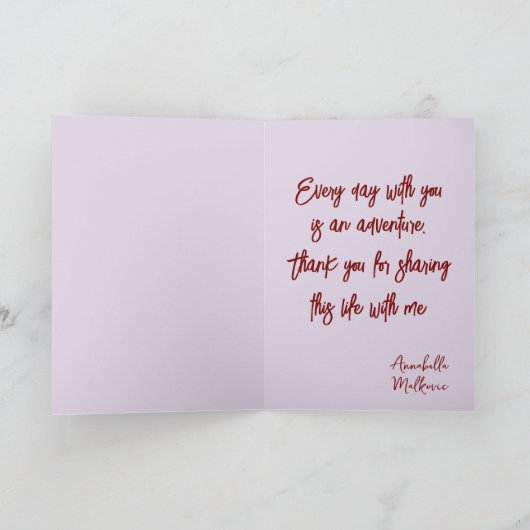 Every day with you
is an adventure.
Thank you for sharing
this life with me
Annabella
Malkovic